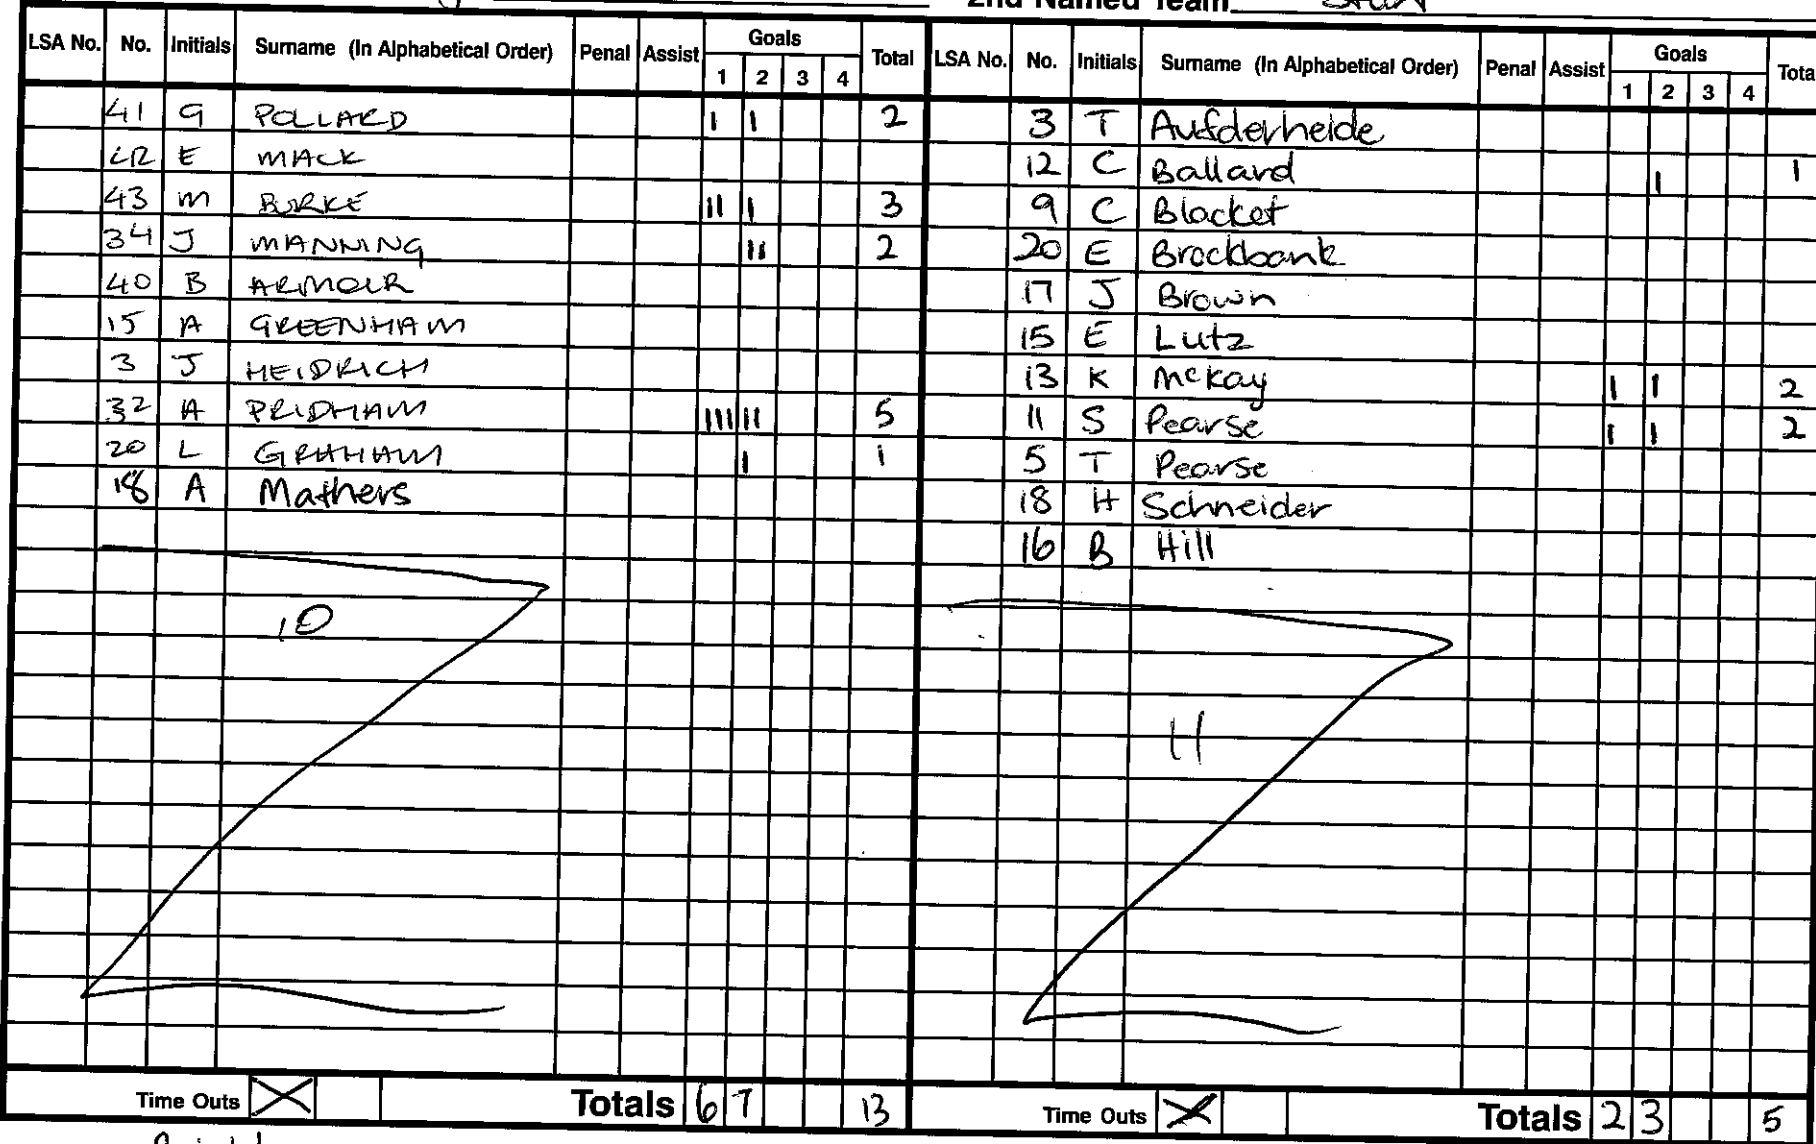 2nd Named Team
LSA No. No. Initials Surname (In Alphabetical Order) Penal Assist Goals 1 2 3 4 Total
41 G POLLARD I I 2
42 E MACK
43 M BURKE II I 3
34 J MANNING II 2
40 B ARMOUR
15 A GREENHAM
3 J HEIDRICH
32 A PRIDHAM III II 5
20 L GRAHAM I 1
18 A Mathers
10
Time Outs X Totals 6 7 13
LSA No. No. Initials Surname (In Alphabetical Order) Penal Assist Goals 1 2 3 4 Tota
3 T Aufderheide
12 C Ballard I 1
9 C Blacket
20 E Brockbank
17 J Brown
15 E Lutz
13 K McKay I I 2
11 S Pearse I I 2
5 T Pearse
18 H Schneider
16 B Hill
11
Time Outs X Totals 2 3 5